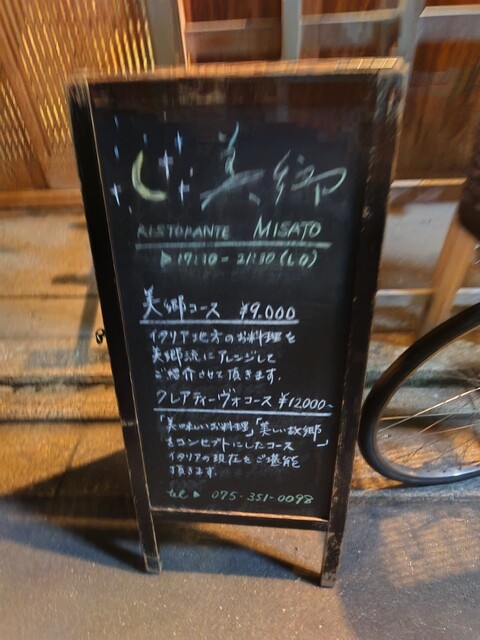 美郷
RISTORANTE MISATO
▶ 17:30 - 21:30 (L.O)
美郷コース ¥9.000
イタリア地方のお料理を
美郷流にアレンジして
ご紹介させて頂きます.
クレアティーヴォコース ¥12000-
「美味しいお料理」「美しい故郷」
をコンセプトにしたコース
イタリアの現在をご堪能
頂きます.
tel ▶ 075-351-0098